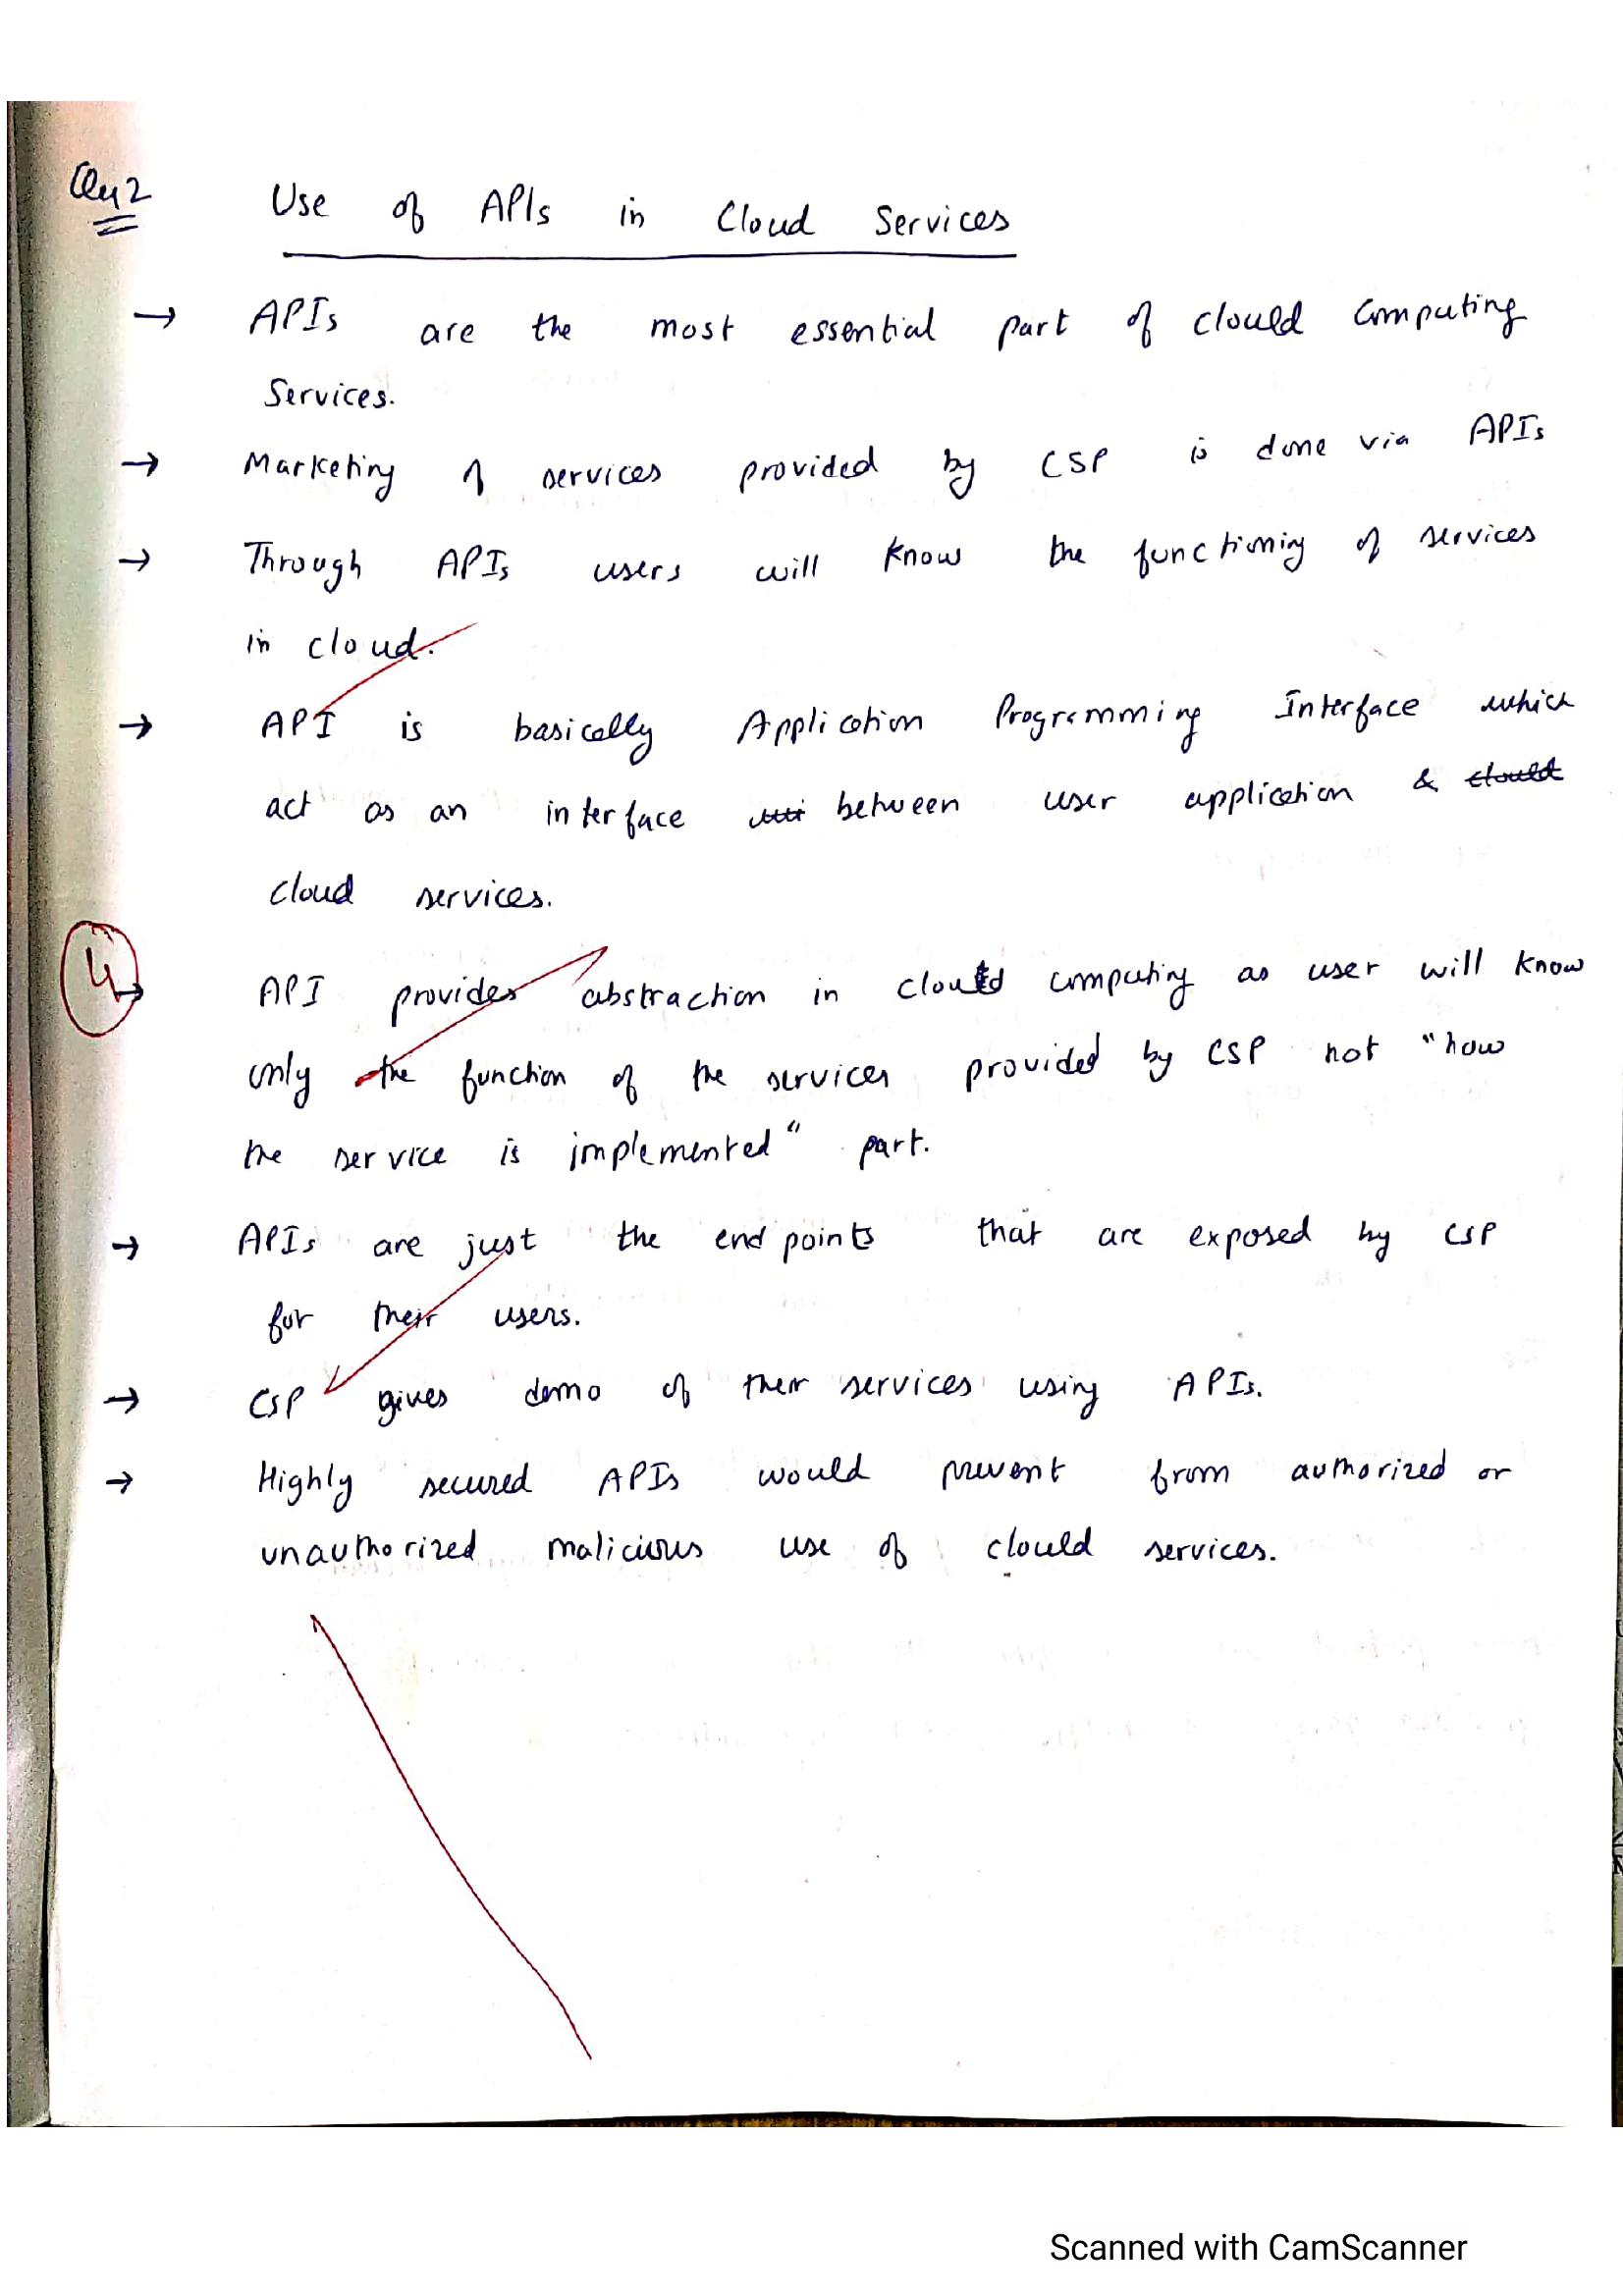 Qu 2
Use of APIs in Cloud Services
→ APIs are the most essential part of clould computing
Services.
→ Marketing of services provided by CSP is done via APIs
→ Through APIs users will know the functioning of services
in cloud.
→ API is basically Application Programming Interface which
act as an interface between user application & clould
cloud services.
4
→ API provides abstraction in cloud computing as user will know
only the function of the services provided by CSP not "how
the service is implemented" part.
→ APIs are just the end points that are exposed by CSP
for their users.
→ CSP gives demo of their services using APIs.
→ Highly secured APIs would prevent from authorized or
unauthorized malicious use of clould services.
Scanned with CamScanner